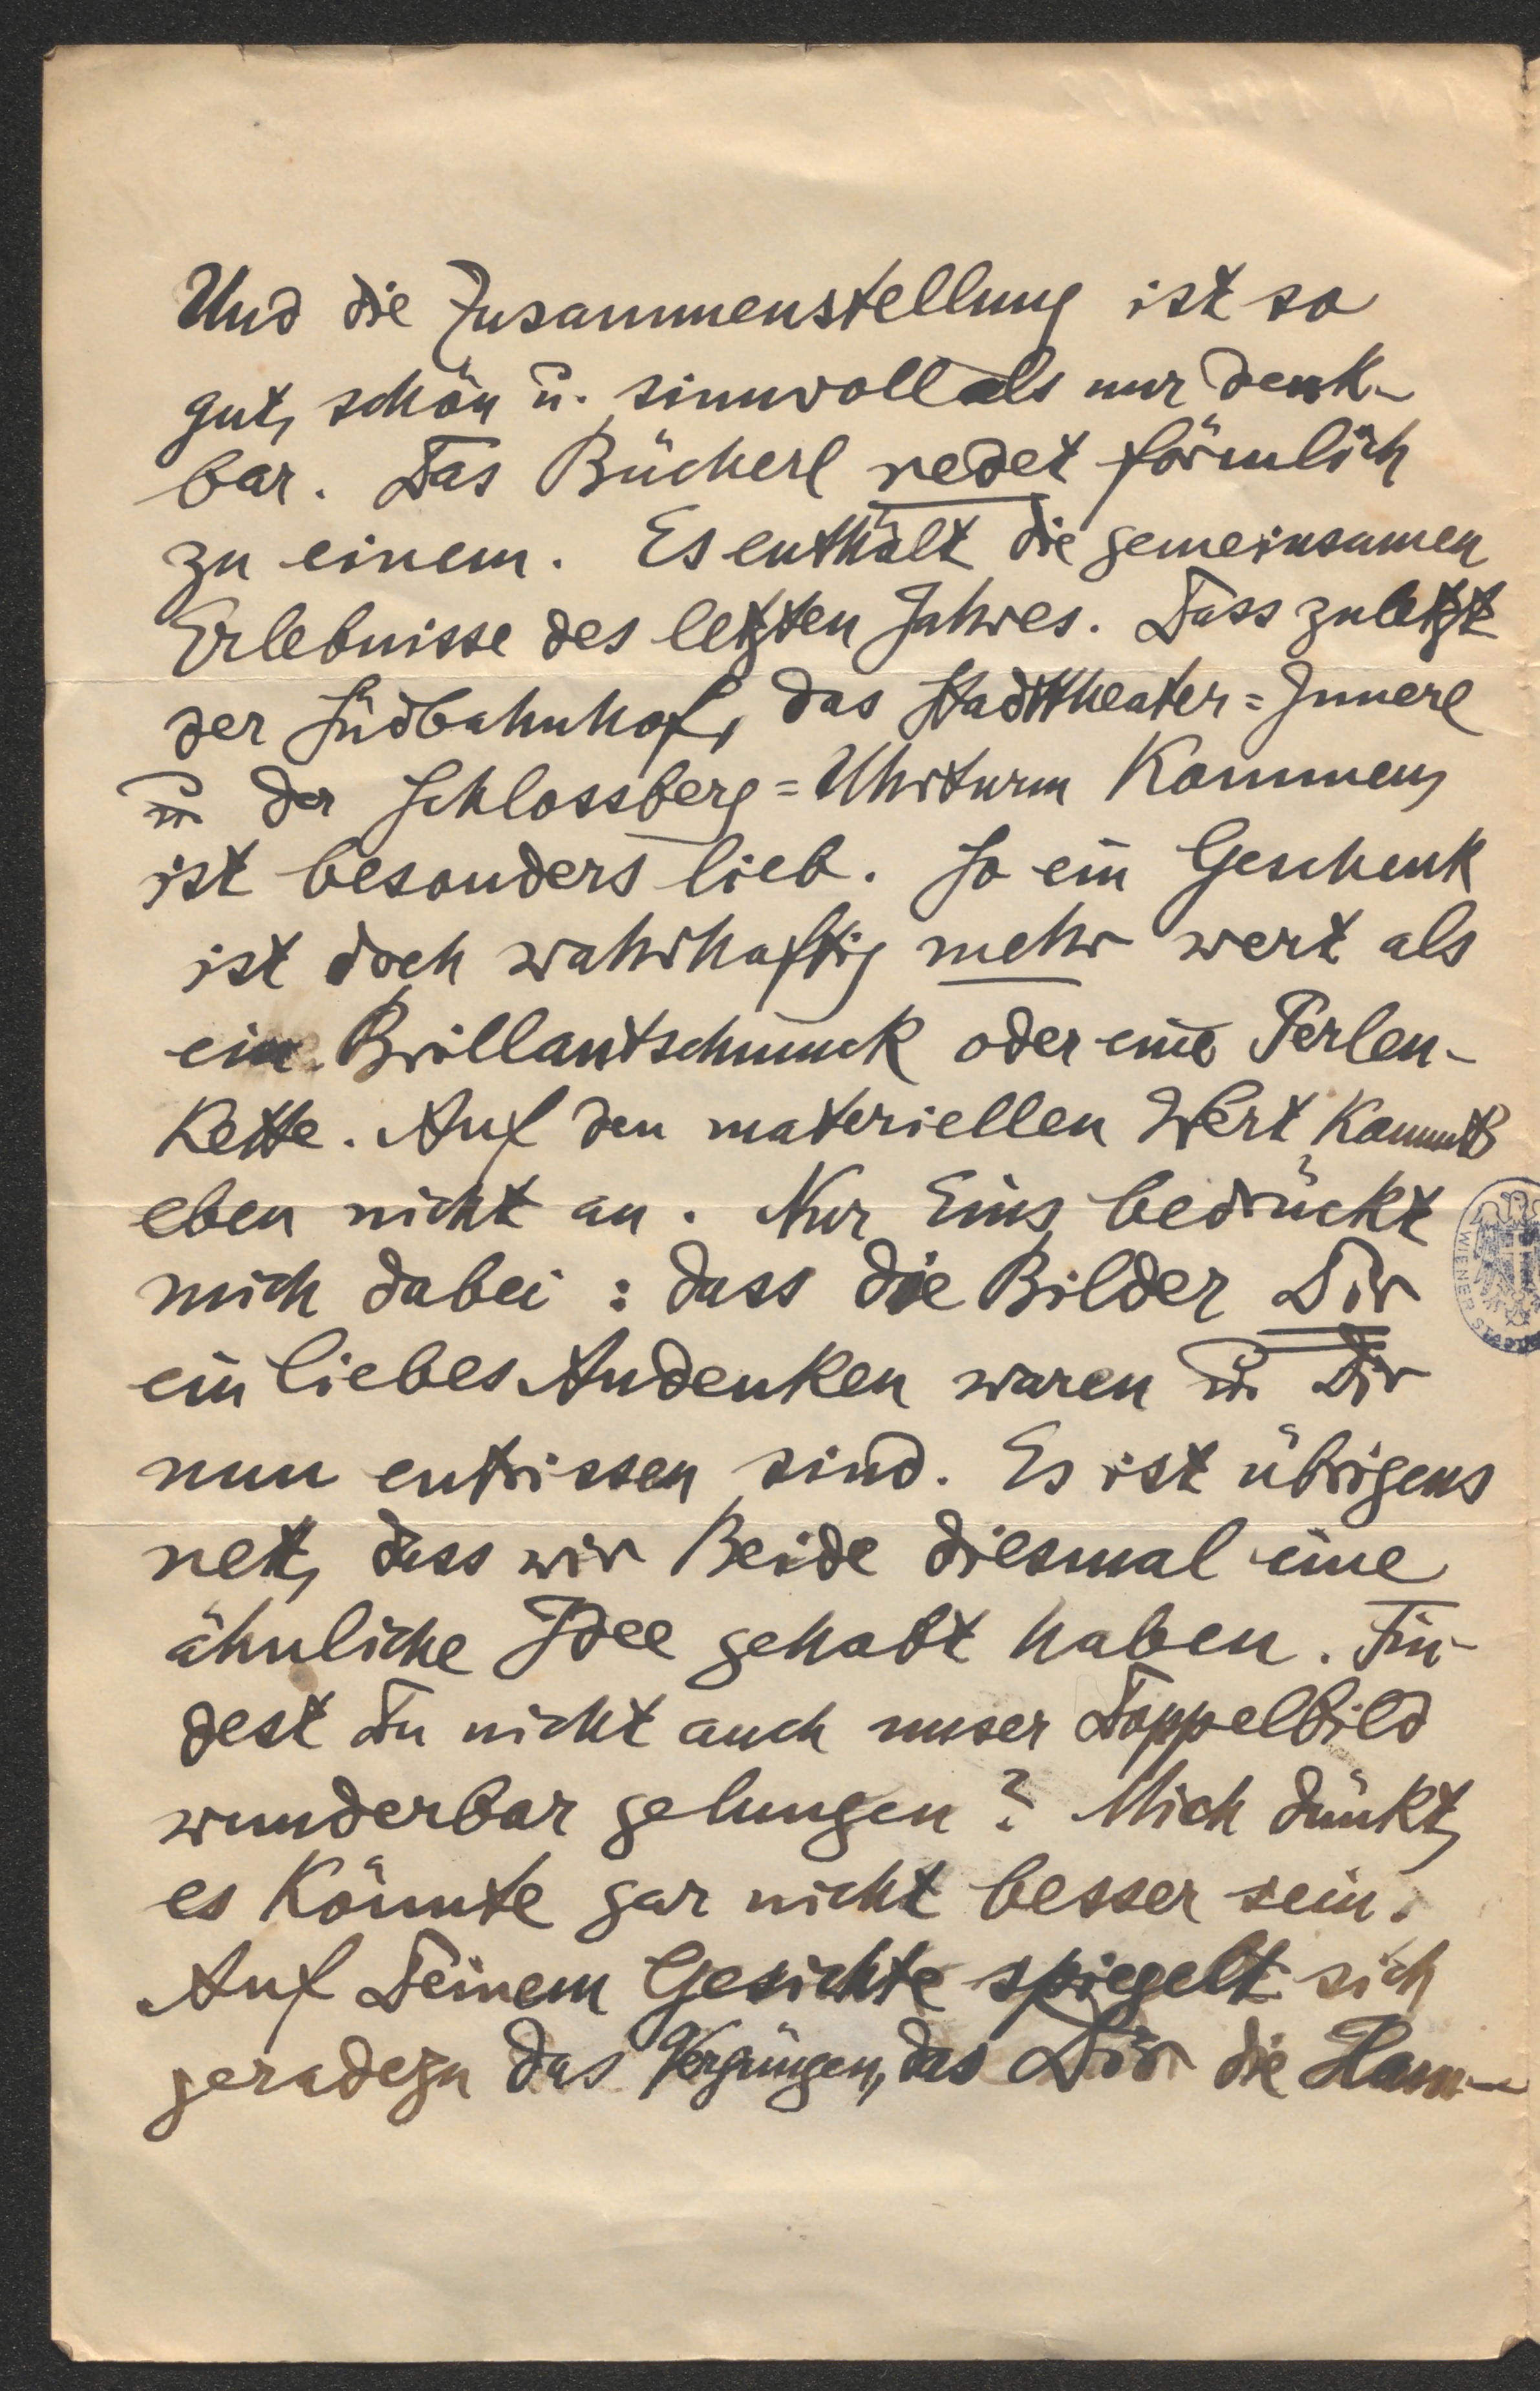 Und die Zusammenstellung ist so
gut, schön u. sinnvoll als nur denk-
bar. Das Bücherl redet förmlich
zu einem. Es enthält die gemeinsamen
Erlebnisse des letzten Jahres. Dass zuletzt
der Südbahnhof, das Stadttheater=Innere
u. der Schlossberg=Uhrturm kommen,
ist besonders lieb. So ein Geschenk
ist doch wahrhaftig mehr wert als
ein Brillantschmuck oder eine Perlen-
kette. Auf den materiellen Wert kommts
eben nicht an. Nur Eins bedrückt
mich dabei: dass die Bilder Dir
ein liebes Andenken waren u. Dir
nun entrissen sind. Es ist übrigens
nett, dass wir Beide diesmal eine
ähnliche Idee gehabt haben. Fin-
dest Du nicht auch unser Doppelbild
wunderbar gelungen? Mich dünkt,
es könnte gar nicht besser sein.
Auf Deinem Gesichte spiegelt sich
geradezu das Vergnügen, das Dir die Ham-
WIENER